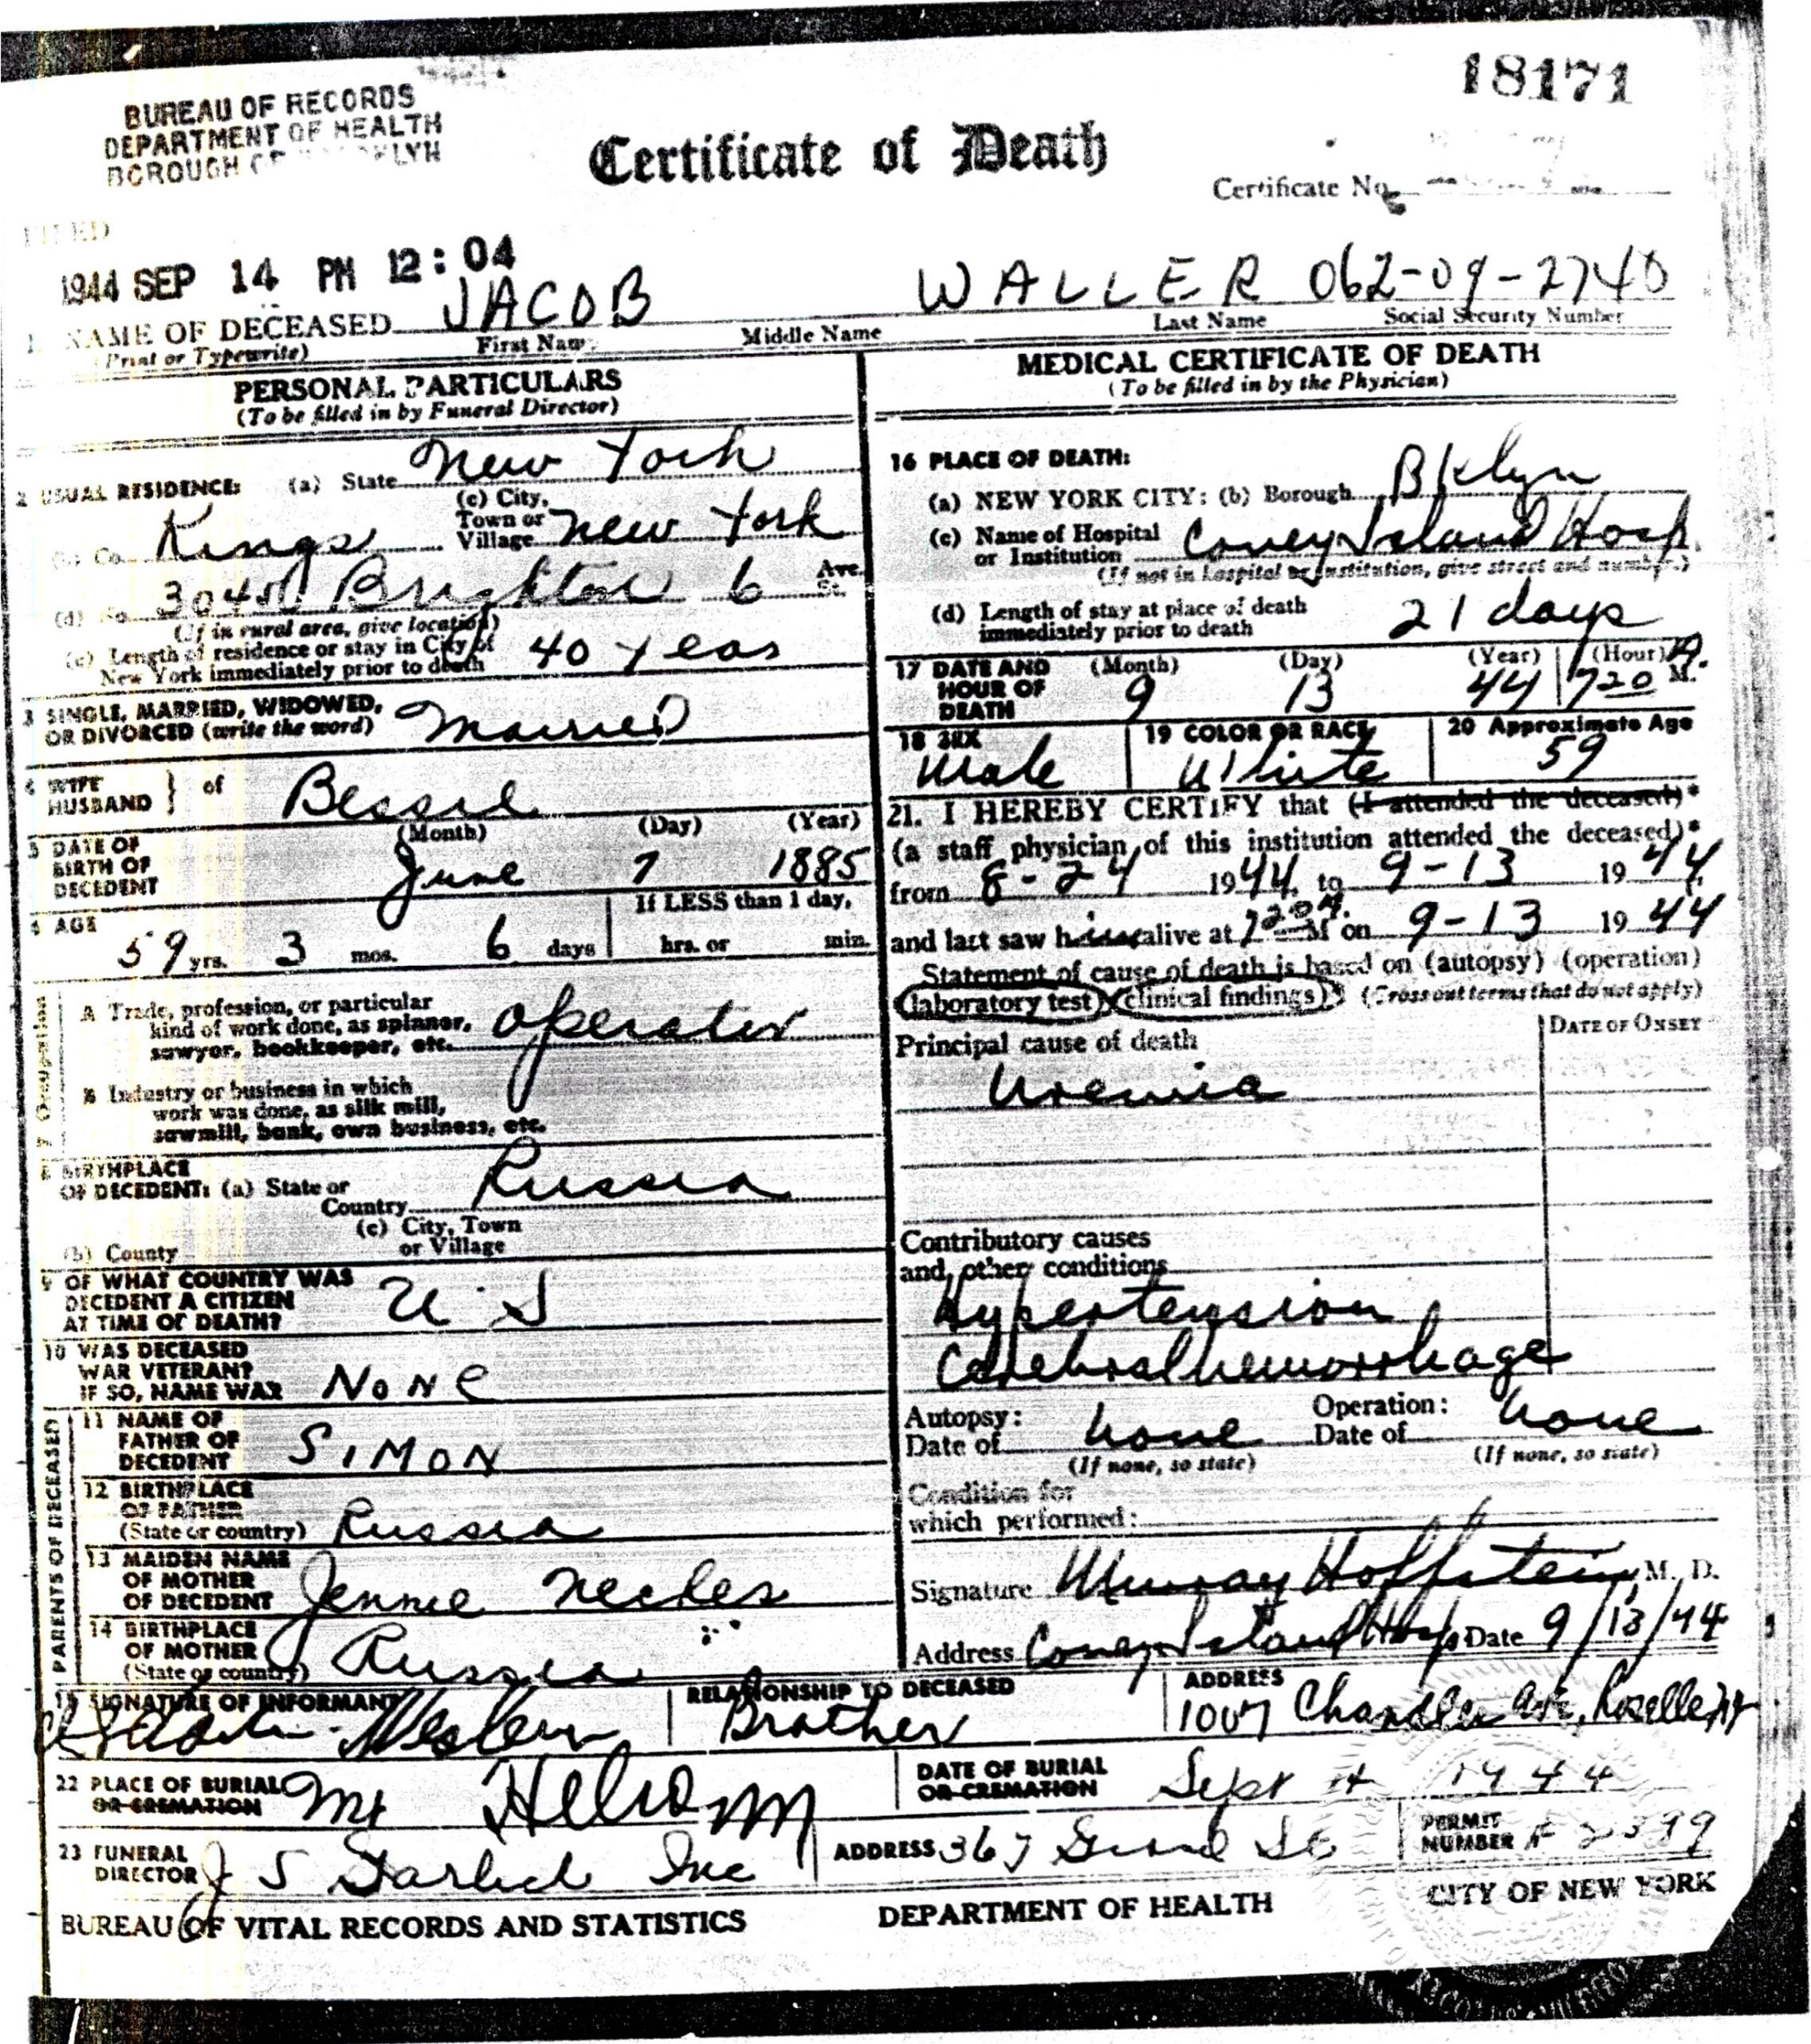 18171
BUREAU OF RECORDS
DEPARTMENT OF HEALTH
BOROUGH OF BROOKLYN
Certificate of Death
Certificate No.
FILED
1944 SEP 14 PM 12:04
1 NAME OF DECEASED JACOB WALLER 062-09-2740
(Print or Typewrite) First Name Middle Name Last Name Social Security Number
PERSONAL PARTICULARS
(To be filled in by Funeral Director)
2 USUAL RESIDENCE: (a) State New York
(b) Co. Kings (c) City, Town or Village New York
(d) No. Brighton 6 Ave. St.
(If in rural area, give location)
(e) Length of residence or stay in City of New York immediately prior to death 40 years
3 SINGLE, MARRIED, WIDOWED,
OR DIVORCED (write the word) Married
4 WIFE HUSBAND } of Bessie
5 DATE OF BIRTH OF DECEDENT (Month) (Day) (Year)
June 7 1885
6 AGE If LESS than 1 day,
59 yrs. 3 mos. 6 days hrs. or min.
7 Occupation
A Trade, profession, or particular
kind of work done, as spinner,
sawyer, bookkeeper, etc. Operator
B Industry or business in which
work was done, as silk mill,
sawmill, bank, own business, etc.
8 BIRTHPLACE
OF DECEDENT: (a) State or
Country Russia
(c) City, Town
(b) County or Village
9 OF WHAT COUNTRY WAS
DECEDENT A CITIZEN
AT TIME OF DEATH? U.S
10 WAS DECEASED
WAR VETERAN?
IF SO, NAME WAR NONE
PARENTS OF DECEASED
11 NAME OF
FATHER OF
DECEDENT SIMON
12 BIRTHPLACE
OF FATHER
(State or country) Russia
13 MAIDEN NAME
OF MOTHER
OF DECEDENT Jennie
14 BIRTHPLACE
OF MOTHER
(State or country) Russia
MEDICAL CERTIFICATE OF DEATH
(To be filled in by the Physician)
16 PLACE OF DEATH:
(a) NEW YORK CITY: (b) Borough Bklyn
(c) Name of Hospital
or Institution Coney Island Hosp.
(If not in hospital or institution, give street and number.)
(d) Length of stay at place of death
immediately prior to death 21 days
17 DATE AND HOUR OF DEATH (Month) (Day) (Year) (Hour) A.
9 13 44 7 20 M.
18 SEX 19 COLOR OR RACE 20 Approximate Age
Male White 59
21. I HEREBY CERTIFY that (I attended the deceased)*
(a staff physician of this institution attended the deceased)*
from 8-24 1944, to 9-13 1944,
and last saw him alive at 7 20 A. M on 9-13 1944
Statement of cause of death is based on (autopsy) (operation)
(laboratory test) (clinical findings)* (Cross out terms that do not apply)
DATE OF ONSET
Principal cause of death
Uremia
Contributory causes
and other conditions
Hypertension
Cerebral hemorrhage
Autopsy: Operation:
Date of none Date of none
(If none, so state) (If none, so state)
Condition for
which performed:
Signature Murray Hoffstein, M. D.
Address Coney Island Hosp. Date 9/13/44
15 SIGNATURE OF INFORMANT RELATIONSHIP TO DECEASED ADDRESS
Brother 1007 Chandler Ave, Roselle NJ
22 PLACE OF BURIAL
OR CREMATION Mt Hebron
DATE OF BURIAL
OR CREMATION Sept 14 1944
23 FUNERAL
DIRECTOR J S Garlick Inc
ADDRESS 367 Grand St
PERMIT
NUMBER 2399
BUREAU OF VITAL RECORDS AND STATISTICS DEPARTMENT OF HEALTH CITY OF NEW YORK